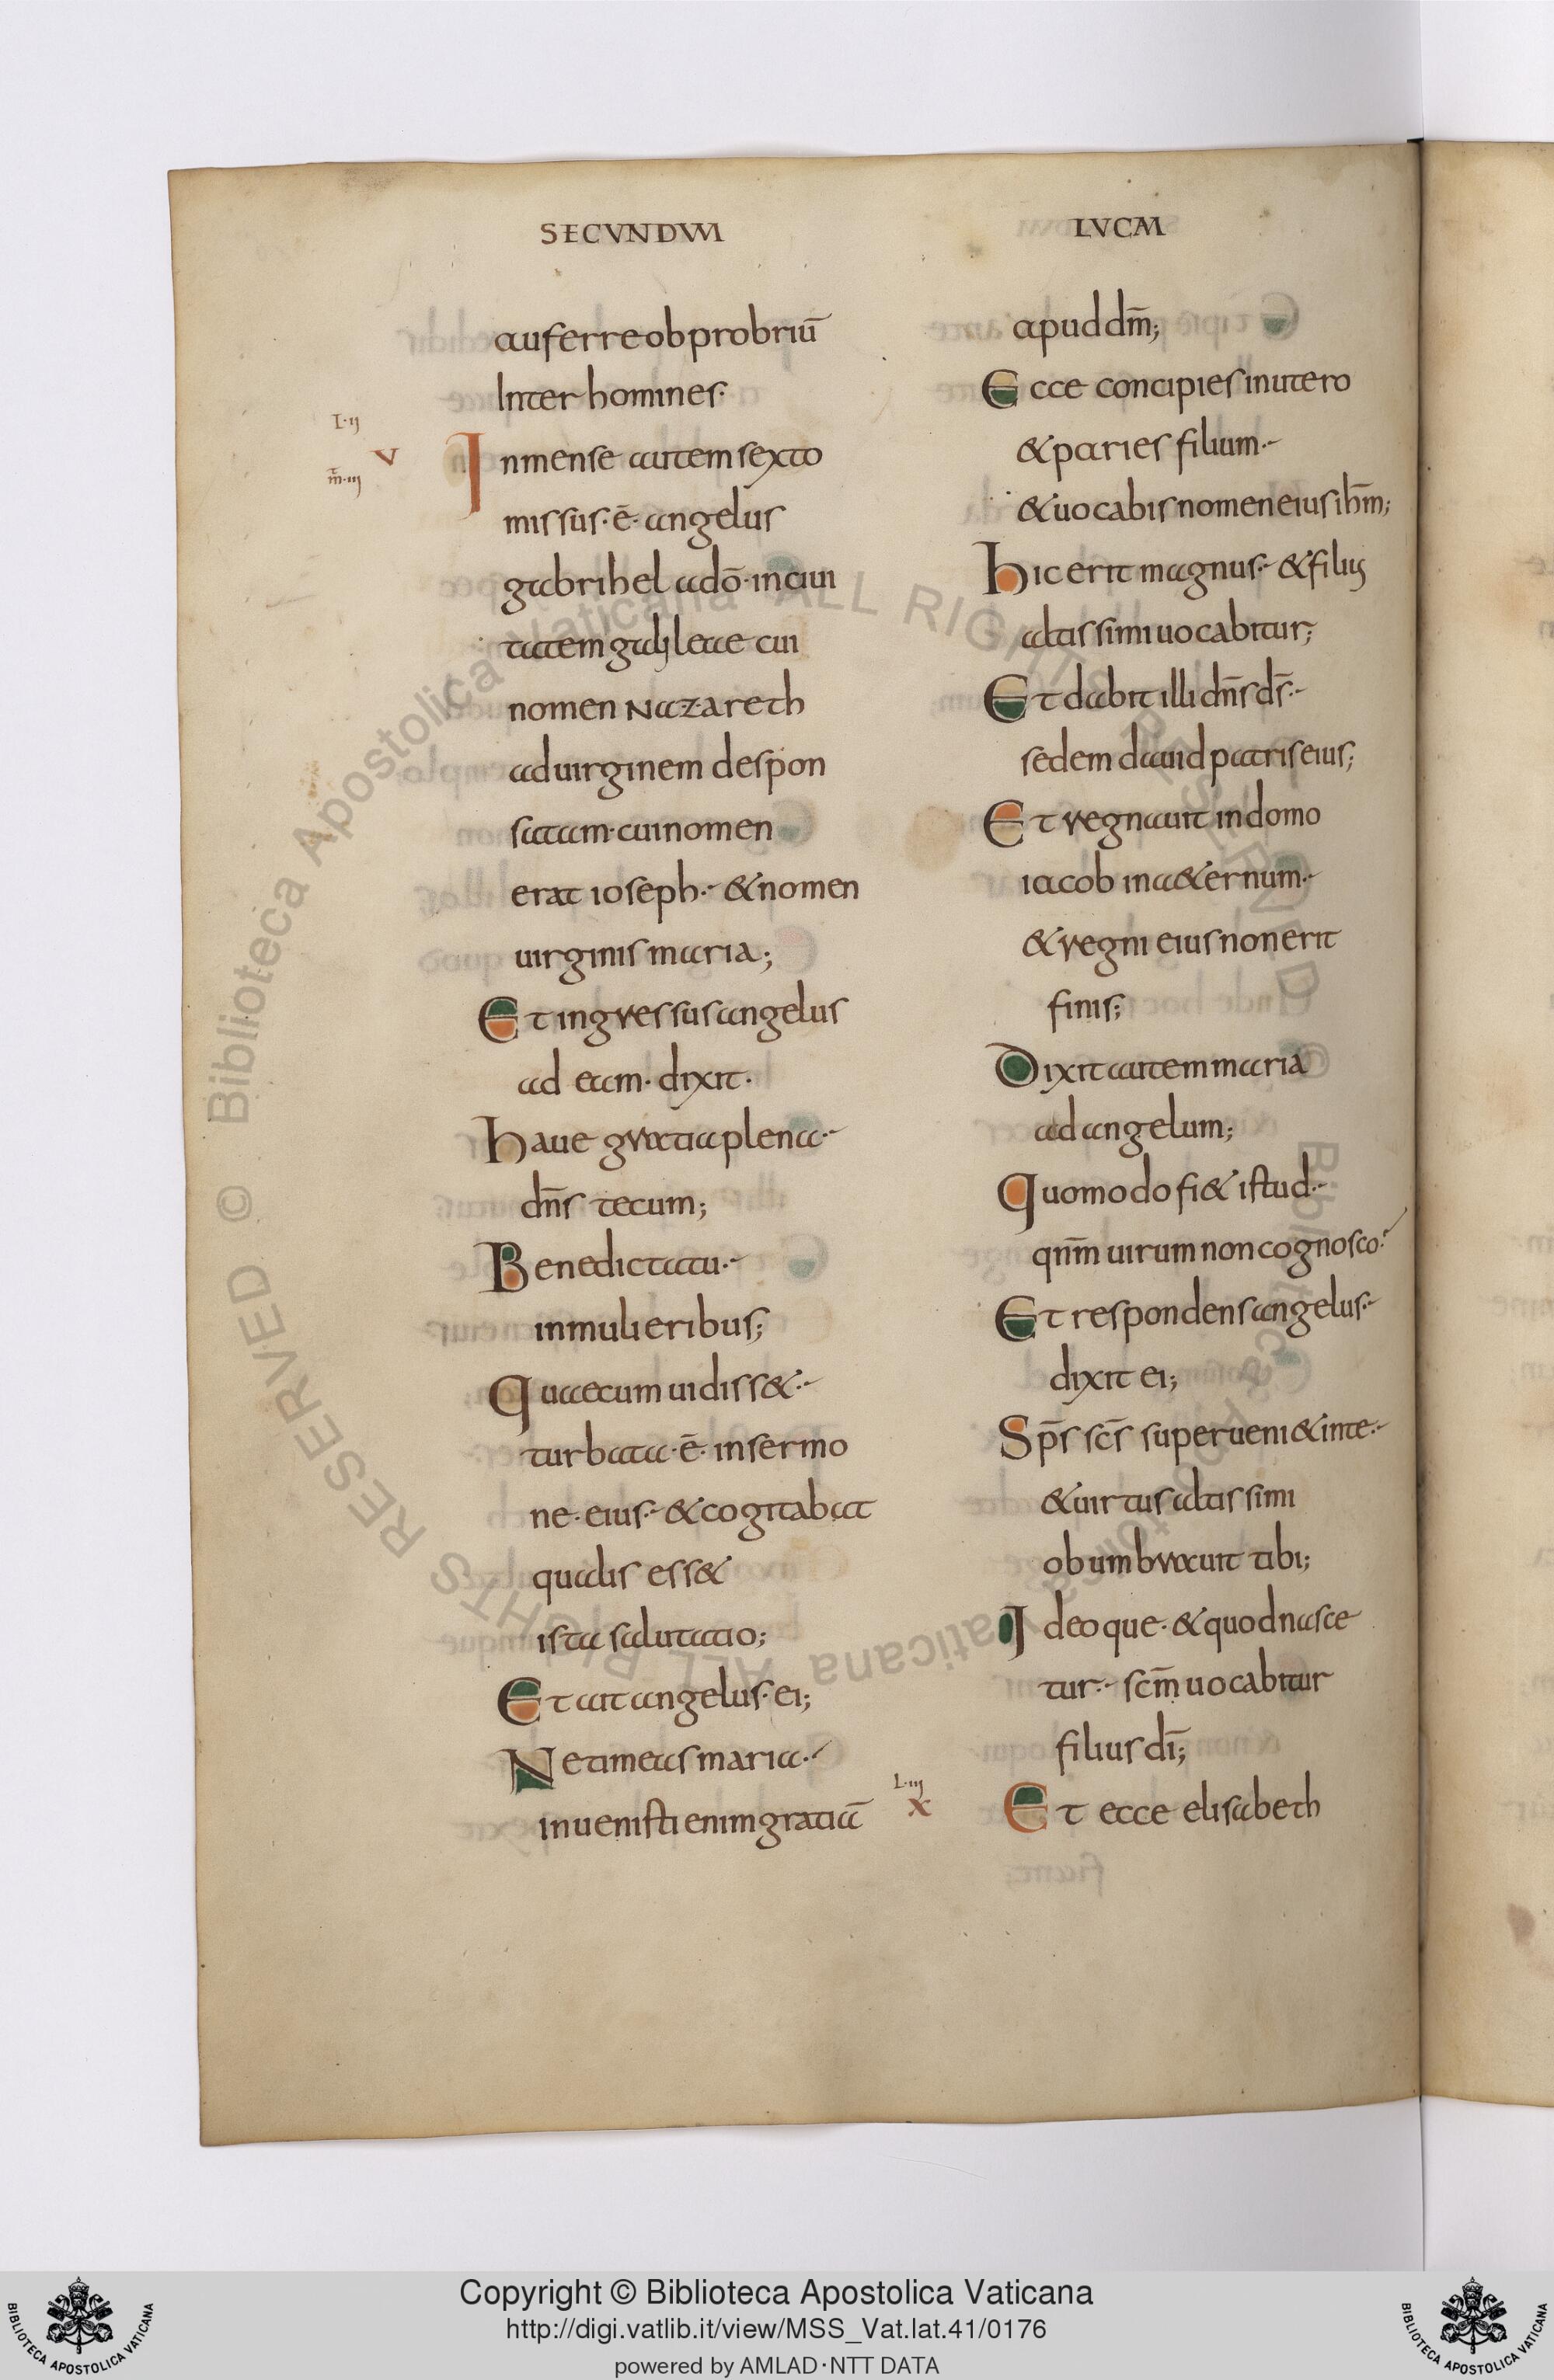 SECVNDVM
LVCAM
auferre obprobriū
Inter homines·
L·ii
V
m̄·iii
Inmense autem sexto
missus· ē· angelus
gabrihel adō· in ciui
tatem galileae cui
nomen nazareth
ad uirginem despon
satam· cui nomen
erat ioseph·- & nomen
uirginis maria;
Et ingressus angelus
ad eam· dixit·
haue gratia plena·-
dn̄s tecum;
Benedicta tu·-
in mulieribus;
Quae cum uidiss&·-
turbata· ē· in sermo
ne· eius·- & cogitabat
qualis ess&
ista salutatio;
Et ait angelus· ei;
Ne timeas maria·-
inuenisti enim gratiā
apud dm̄;
Ecce concipies in utero
& paries filium·-
& uocabis nomen eius ihm̄;
hic erit magnus·- & filius
altissimi uocabitur;
Et dabit illi dn̄s ds̄·-
sedem dauid patris eius;
Et regnauit in domo
iacob in a&ernum·-
& regni eius non erit
finis;
Dixit autem maria
ad angelum;
Quomodo fi& istud·-
qnm̄ uirum non cognosco·
Et respondens angelus·-
dixit ei;
Sp̄s sc̄s superueni& in te·-
& uirtus altissimi
obumbrauit tibi;
Ideoque· & quod nasce
tur·- scm̄ uocabitur
filius dī;
L·iii
X
Et ecce elisabeth
© Biblioteca Apostolica Vaticana ALL RIGHTS RESERVED
© Biblioteca Apostolica Vaticana ALL RIGHTS RESERVED
Copyright © Biblioteca Apostolica Vaticana
http://digi.vatlib.it/view/MSS_Vat.lat.41/0176
powered by AMLAD·NTT DATA
BIBLIOTECA APOSTOLICA VATICANA
BIBLIOTECA APOSTOLICA VATICANA